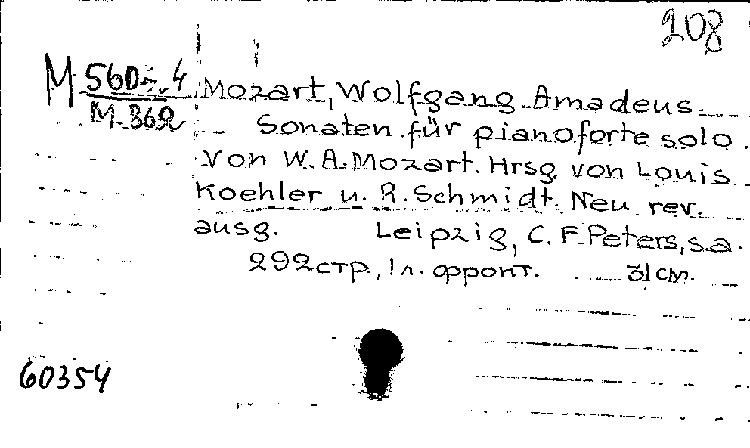 208
M 560-4
M-369
Mozart, Wolfgang Amadeus
Sonaten für pianoforte solo.
Von W. A. Mozart. Hrsg. von Louis
Koehler u. R. Schmidt. Neu rev.
ausg. Leipzig, C. F. Peters, s.a.
292 стр., 1 л. фронт. 31 см.
60354